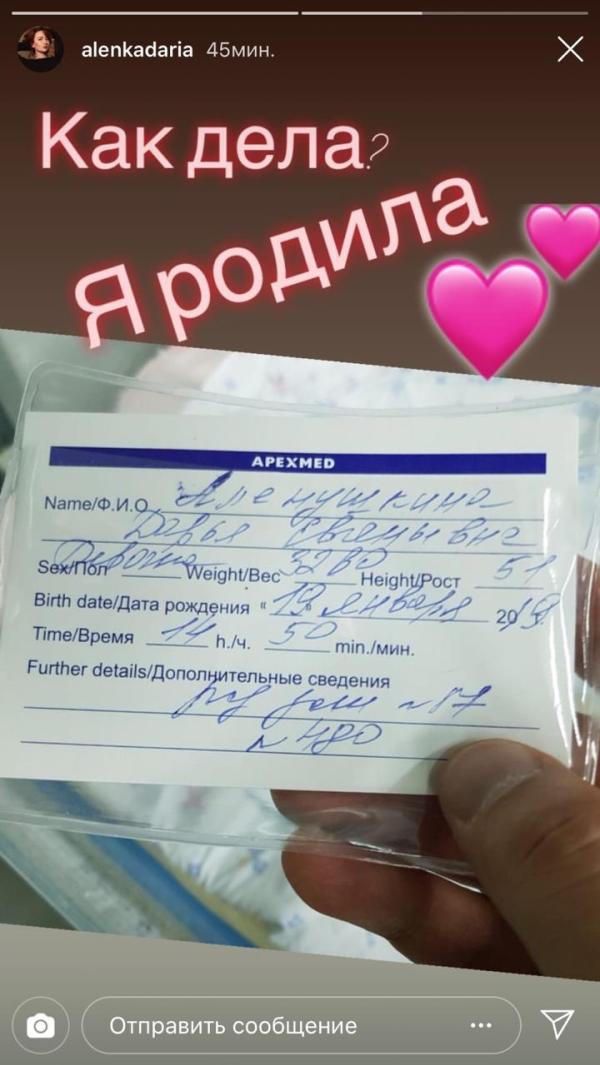 alenkadaria 45мин.
Как дела?
Я родила
APEXMED
Name/Ф.И.О. Аленушкина
Дарья Евгеньевна
Sex/Пол Девочка Weight/Вес 3280 Height/Рост 51
Birth date/Дата рождения "19" января 2019
Time/Время 14 h./ч. 50 min./мин.
Further details/Дополнительные сведения
дом №17
№480
Отправить сообщение